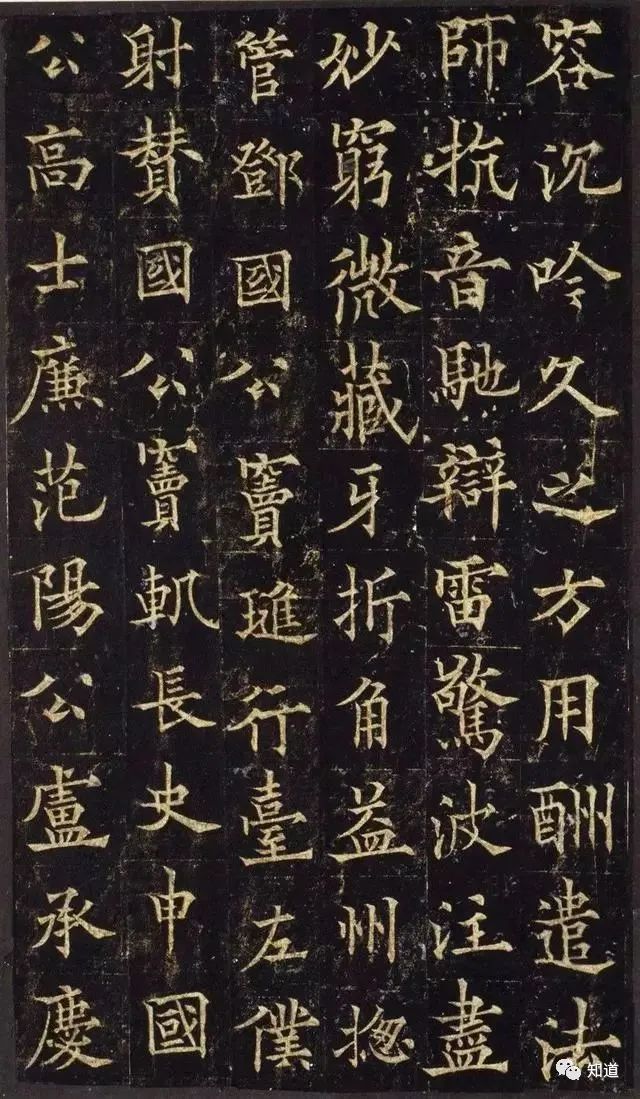 容沉吟久之方用酬遣法
師抗音馳辯雷驚波注盡
妙窮微藏牙折角益州揔
管鄧國公竇璡行臺左僕
射贊國公竇軌長史申國
公高士廉范陽公盧承慶
知道